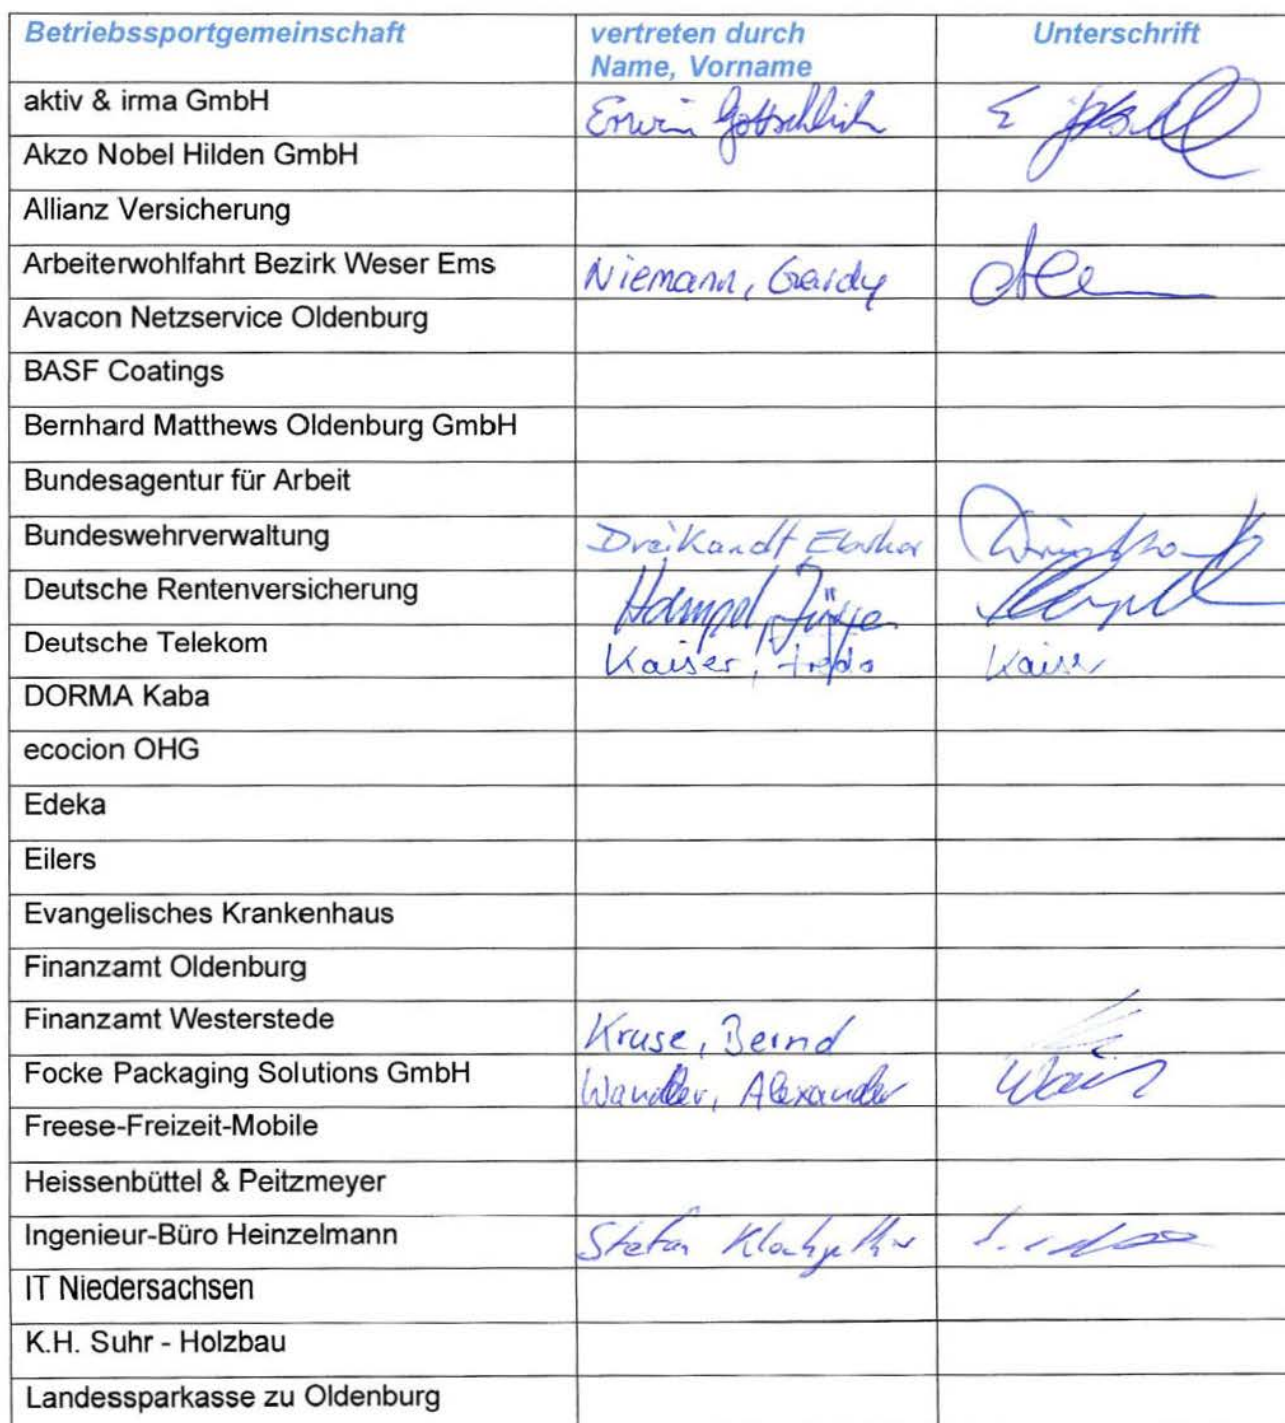 Betriebssportgemeinschaft vertreten durch Unterschrift
Name, Vorname
aktiv & irma GmbH Erwin Gottschlich
Akzo Nobel Hilden GmbH
Allianz Versicherung
Arbeiterwohlfahrt Bezirk Weser Ems Niemann, Gerdy
Avacon Netzservice Oldenburg
BASF Coatings
Bernhard Matthews Oldenburg GmbH
Bundesagentur für Arbeit
Bundeswehrverwaltung Dreikandt
Deutsche Rentenversicherung Hampel, Jürgen
Deutsche Telekom Kaiser, Kaiser
DORMA Kaba
ecocion OHG
Edeka
Eilers
Evangelisches Krankenhaus
Finanzamt Oldenburg
Finanzamt Westerstede Kruse, Bernd
Focke Packaging Solutions GmbH Wandler, Alexander
Freese-Freizeit-Mobile
Heissenbüttel & Peitzmeyer
Ingenieur-Büro Heinzelmann Stefan
IT Niedersachsen
K.H. Suhr - Holzbau
Landessparkasse zu Oldenburg